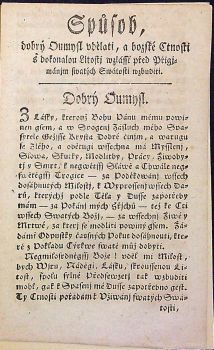 Spůsob,
dobrý Oumysl vdělati, a božské Ctnosti
s dokonalou Litostj wzlásst před Přigj-
mánjm swatých Swátostj wzbuditi.
Dobrý Oumysl.
Z Lásky, kterouž Bohu Pánu mému powi-
nen gsem, a w Spogenj Zásluch mého Spa-
sytele Gežjsse Krysta Dobré činjm, a warugi
se Zlého, a obětugi wssechna má Myssleny,
Slowa, Skutky, Modlitby, Práce, Žiwoby-
tj y Smrt, k negwětssj Sláwě a Chwále neg-
swětěgssj Trogice — za Poděkowánj wssech
dosáhnutých Milostj, k Wyprossenj wssech Da-
rů, kterýchž podlé Těla y Dusse zapotřeby
mám — za Pokánj mých Hřjchů — též ke Cti
wssech Swatých Božj, — za wssechny Žiwé y
Mrtwé, za který se modliti powinný gsem. Žá-
dám Odpustky časných Pokut dosáhnouti, kte-
ré z Pokladu Cýrkwe swaté můž dobýti.
Neymilosrdněgssj Bože! vděl mi Milost,
bych Wjru, Náděgi, Lásku, skroussenou Li-
tost, spolu silné Předsewzetj tak wzbuditi
mohl, gak k Spasenj mé Dusse zapotřebno gest.
Ty Ctnosti pokládám k Vžjwánj swatých Swá-
tostj,